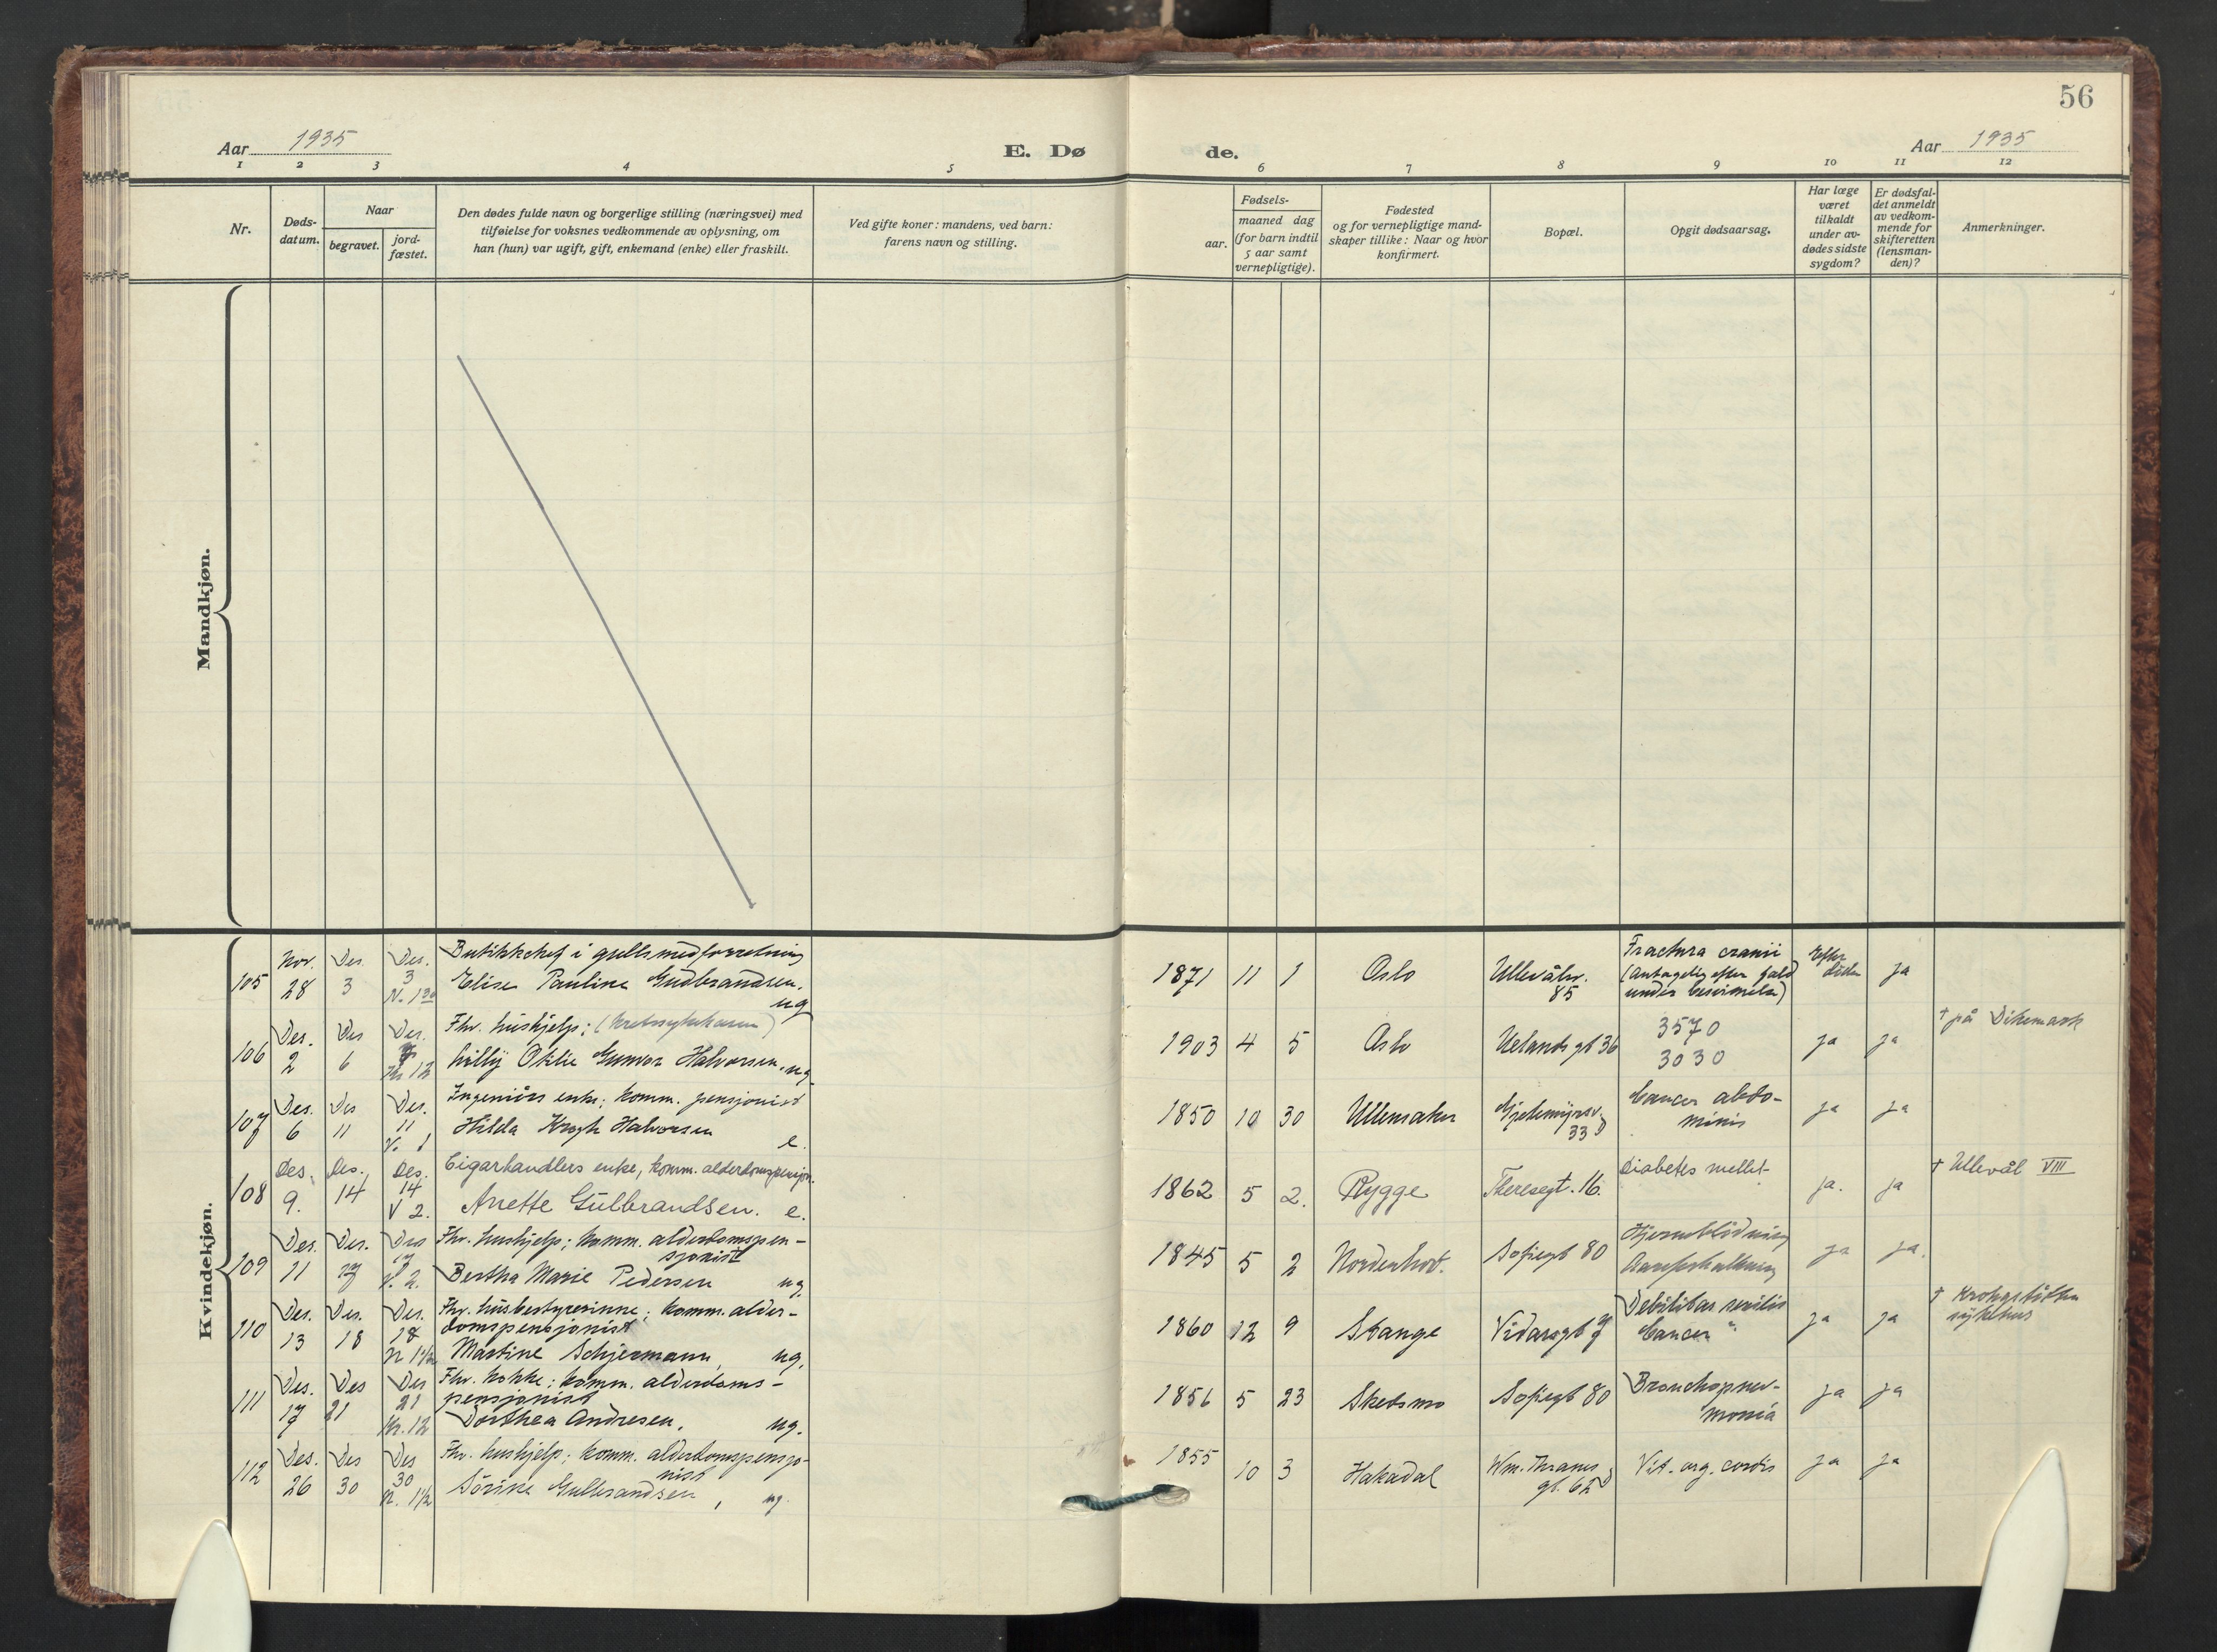 56
Aar 1935
E. Dø
de.
Aar 1935
1 2 3 4 5 6 7 8 9 10 11 12
Nr.
Døds-
datum.
Naar
begravet.
jord-
fæstet.
Den dødes fulde navn og borgerlige stilling (næringsvei) med
tilføielse for voksnes vedkommende av oplysning, om
han (hun) var ugift, gift, enkemand (enke) eller fraskilt.
Ved gifte koner: mandens, ved barn:
farens navn og stilling.
Fødsels-
aar.
maaned dag
(for barn indtil
5 aar samt
vernepligtige).
Fødested
og for vernepligtige mand-
skaper tillike: Naar og hvor
konfirmert.
Bopæl.
Opgit dødsaarsag.
Har læge
været
tilkaldt
under av-
dødes sidste
sygdom?
Er dødsfal-
det anmeldt
av vedkom-
mende for
skifteretten
(lensman-
den)?
Anmerkninger.
Mandkjøn.
Kvindekjøn.
105 Nov. 28 Des 3 Des. 3
Butikkchef i gullsmedforretning
Elise Pauline Gudbrandsen. ug
1871 11 1 Oslo Ullevålsv. 85
Fractura cranii
(Antagelig efter fald
under besvimelse)
Efter døden ja
106 Des. 2 Des 6 Des. 12
Fhv. hushjelp;
Lilly Gunvor Halvorsen. ug
1903 4 5 Oslo Uelands gt 36
3570
3030
ja ja † på Dikemark
107 Des. 6 Des 11 Des. 11 V. 1
Ingeniørs enke; komm. pensjonist
Hilda Krogh Halvorsen e.
1850 10 30 Ullensaker 33
Cancer abdo-
minis
ja ja
108 Des. 9. Des. 14 Des. 14 V 2.
Cigarhandlers enke, komm. alderdomspensjon.
Anette Gulbrandsen. e.
1862 5 2. Rygge Theresegt. 16.
Diabetes mellit
ja. ja † Ullevål VIII
109 Des. 11 Des. 17 Des 17 V. 2.
Fhv. hushjelp; komm. alderdomspen-
sjonist
Bertha Marie Pedersen ug.
1845 5 2 Norderhov. Sofiegt 80
Hjerneblødning
Aareforkalkning
ja ja.
110 Des. 13 Des. 18 Des. 18 N 1½
Fhv. husbestyrerinne; komm. alder-
domspensjonist
Martine Schjermann, ug.
1860 12 9 Stange Vidarsgt
Debilitas senilis
Cancer "
ja ja † Krohgstøtten
sykehus
111 Des. 17 Des 21 Des 21 Kr. 12
Fhv. kokke; komm. alderdoms-
pensjonist
Dorthea Andresen. ug.
1856 5 23 Skedsmo Sofiegt 80
Bronchopneu-
monia
ja ja
112 Des. 26 Des 30 Des 30 N. 1½
Fhv. hushjelp; komm. alderdomspensjo-
nist
Sørine Gulbrandsen, ug.
1855 10 3 Hakadal Wm. Thranes gt. 62
Vit. org. cordis
ja ja